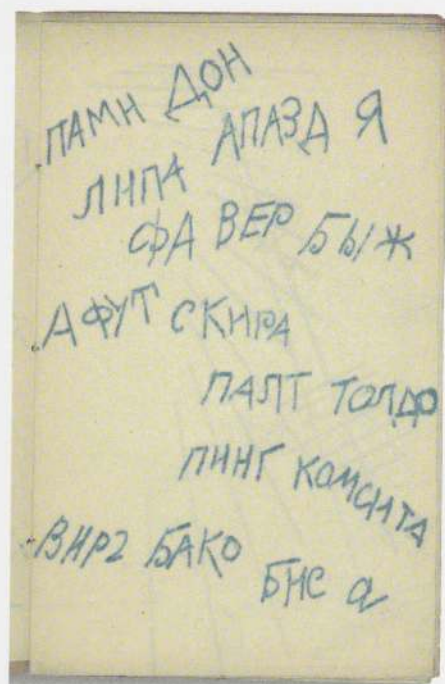 ПАМН ДОН
ЛНПА АПАЗД Я
ФА ВЕР БЫЖ
АФУТ СКНРА
ПАЛТ ТОЛДО
ПННГ КОМСНТА
ВНР2 БАКО
БНС а